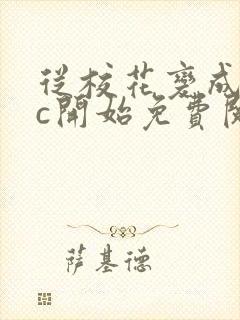 從校花變成
c開始免費閱
萨基德